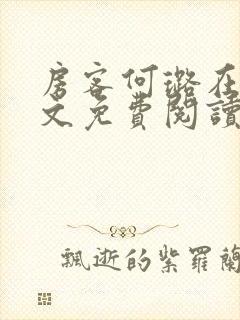 房客何璐在
文免費閱讀
飄逝的紫羅蘭